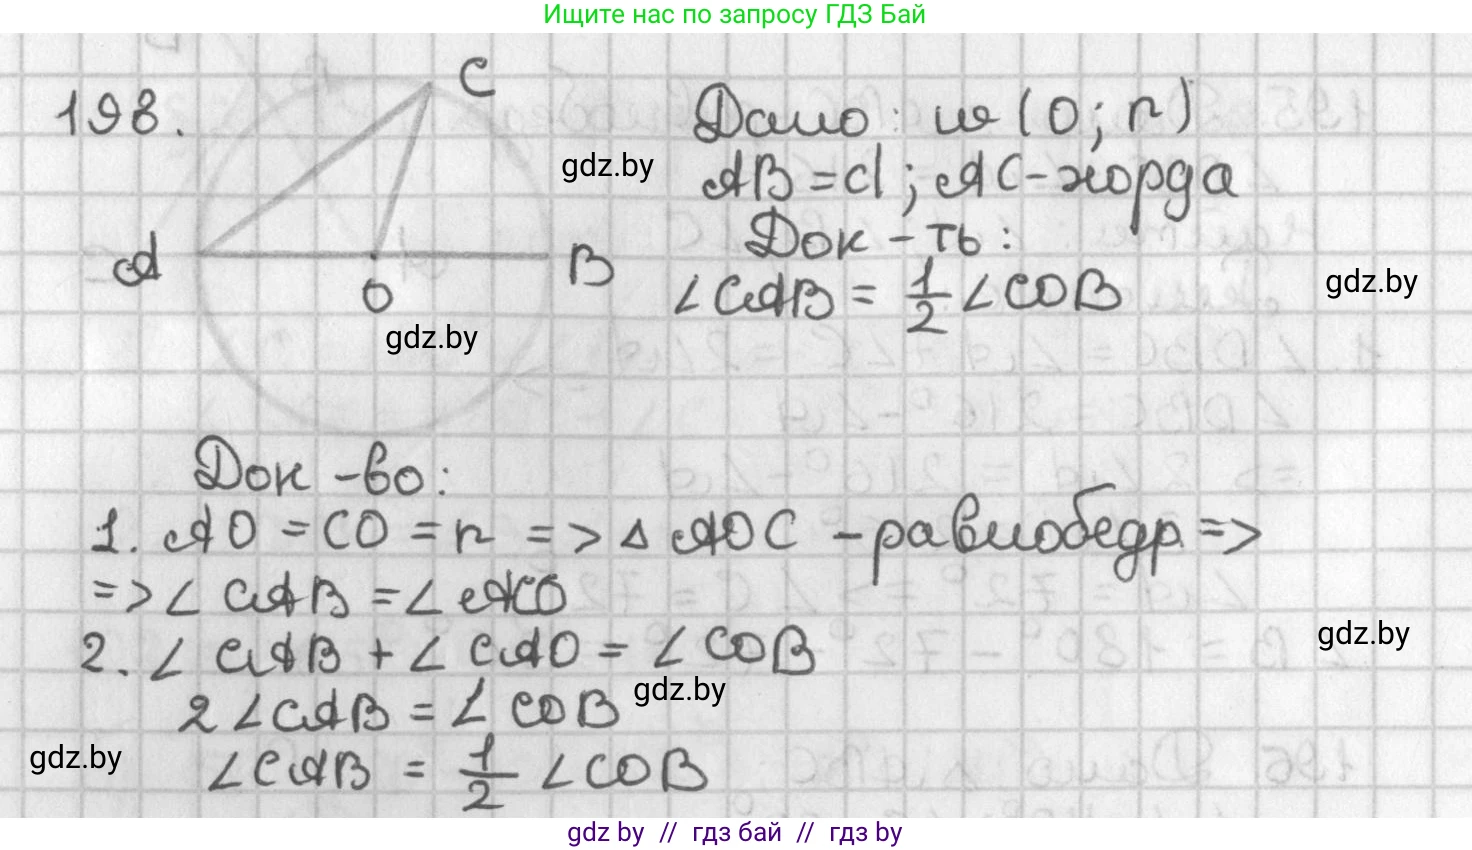 Ищите нас по запросу ГДЗ Бай
198.
C
A
O
B
Дано: w (O; r)
AB = d ; AC - хорда
Док - ть :
∠CAB = 1/2 ∠COB
gdz.by
gdz.by
gdz.by
Док - во:
1. AO = CO = r => Δ AOC - равнобедр. =>
=> ∠ CAB = ∠ ACO
2. ∠ CAB + ∠ CAO = ∠ COB
gdz.by
2 ∠CAB = ∠ COB
gdz.by
∠CAB = 1/2 ∠COB
gdz.by
gdz by // гдз бай // гдз by